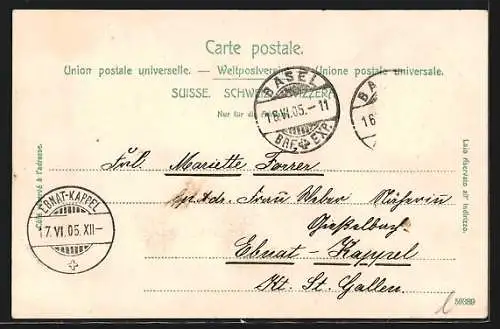 Carte postale.
Union postale universelle. — Weltpostverein — Unione postale universale.
SUISSE. SCHWEIZ. SVIZZERA.
Nur für die
BASEL
16.VI.05.-11
BRF. EXP.
BA
16
Frl. Mariette Farrer
p. Adr. Frau Weber Näherin
Gießelbach
Ebnat-Kappel
Kt. St. Gallen
EBNAT-KAPPEL
17.VI.05.XII-
Côté réservé à l'adresse.
Lato riservato all' indirizzo.
50889